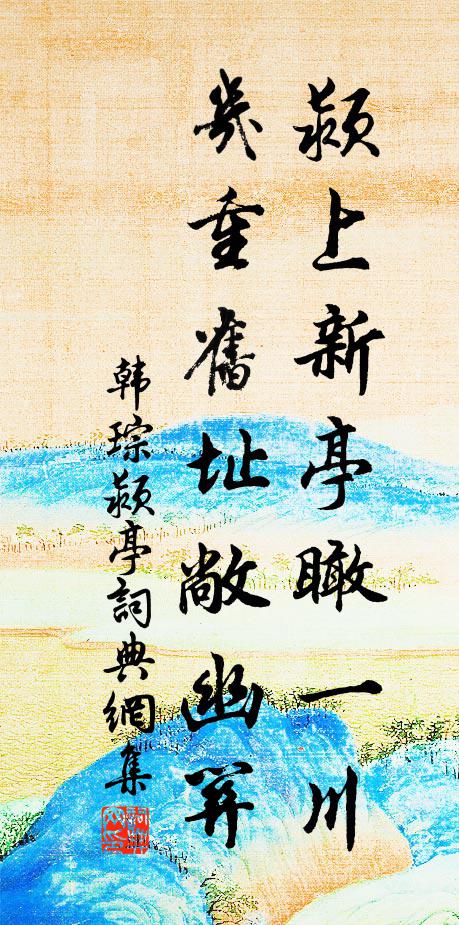 潁上新亭瞰一川
幾重舊址敞幽關
韓琮潁亭詞典網集